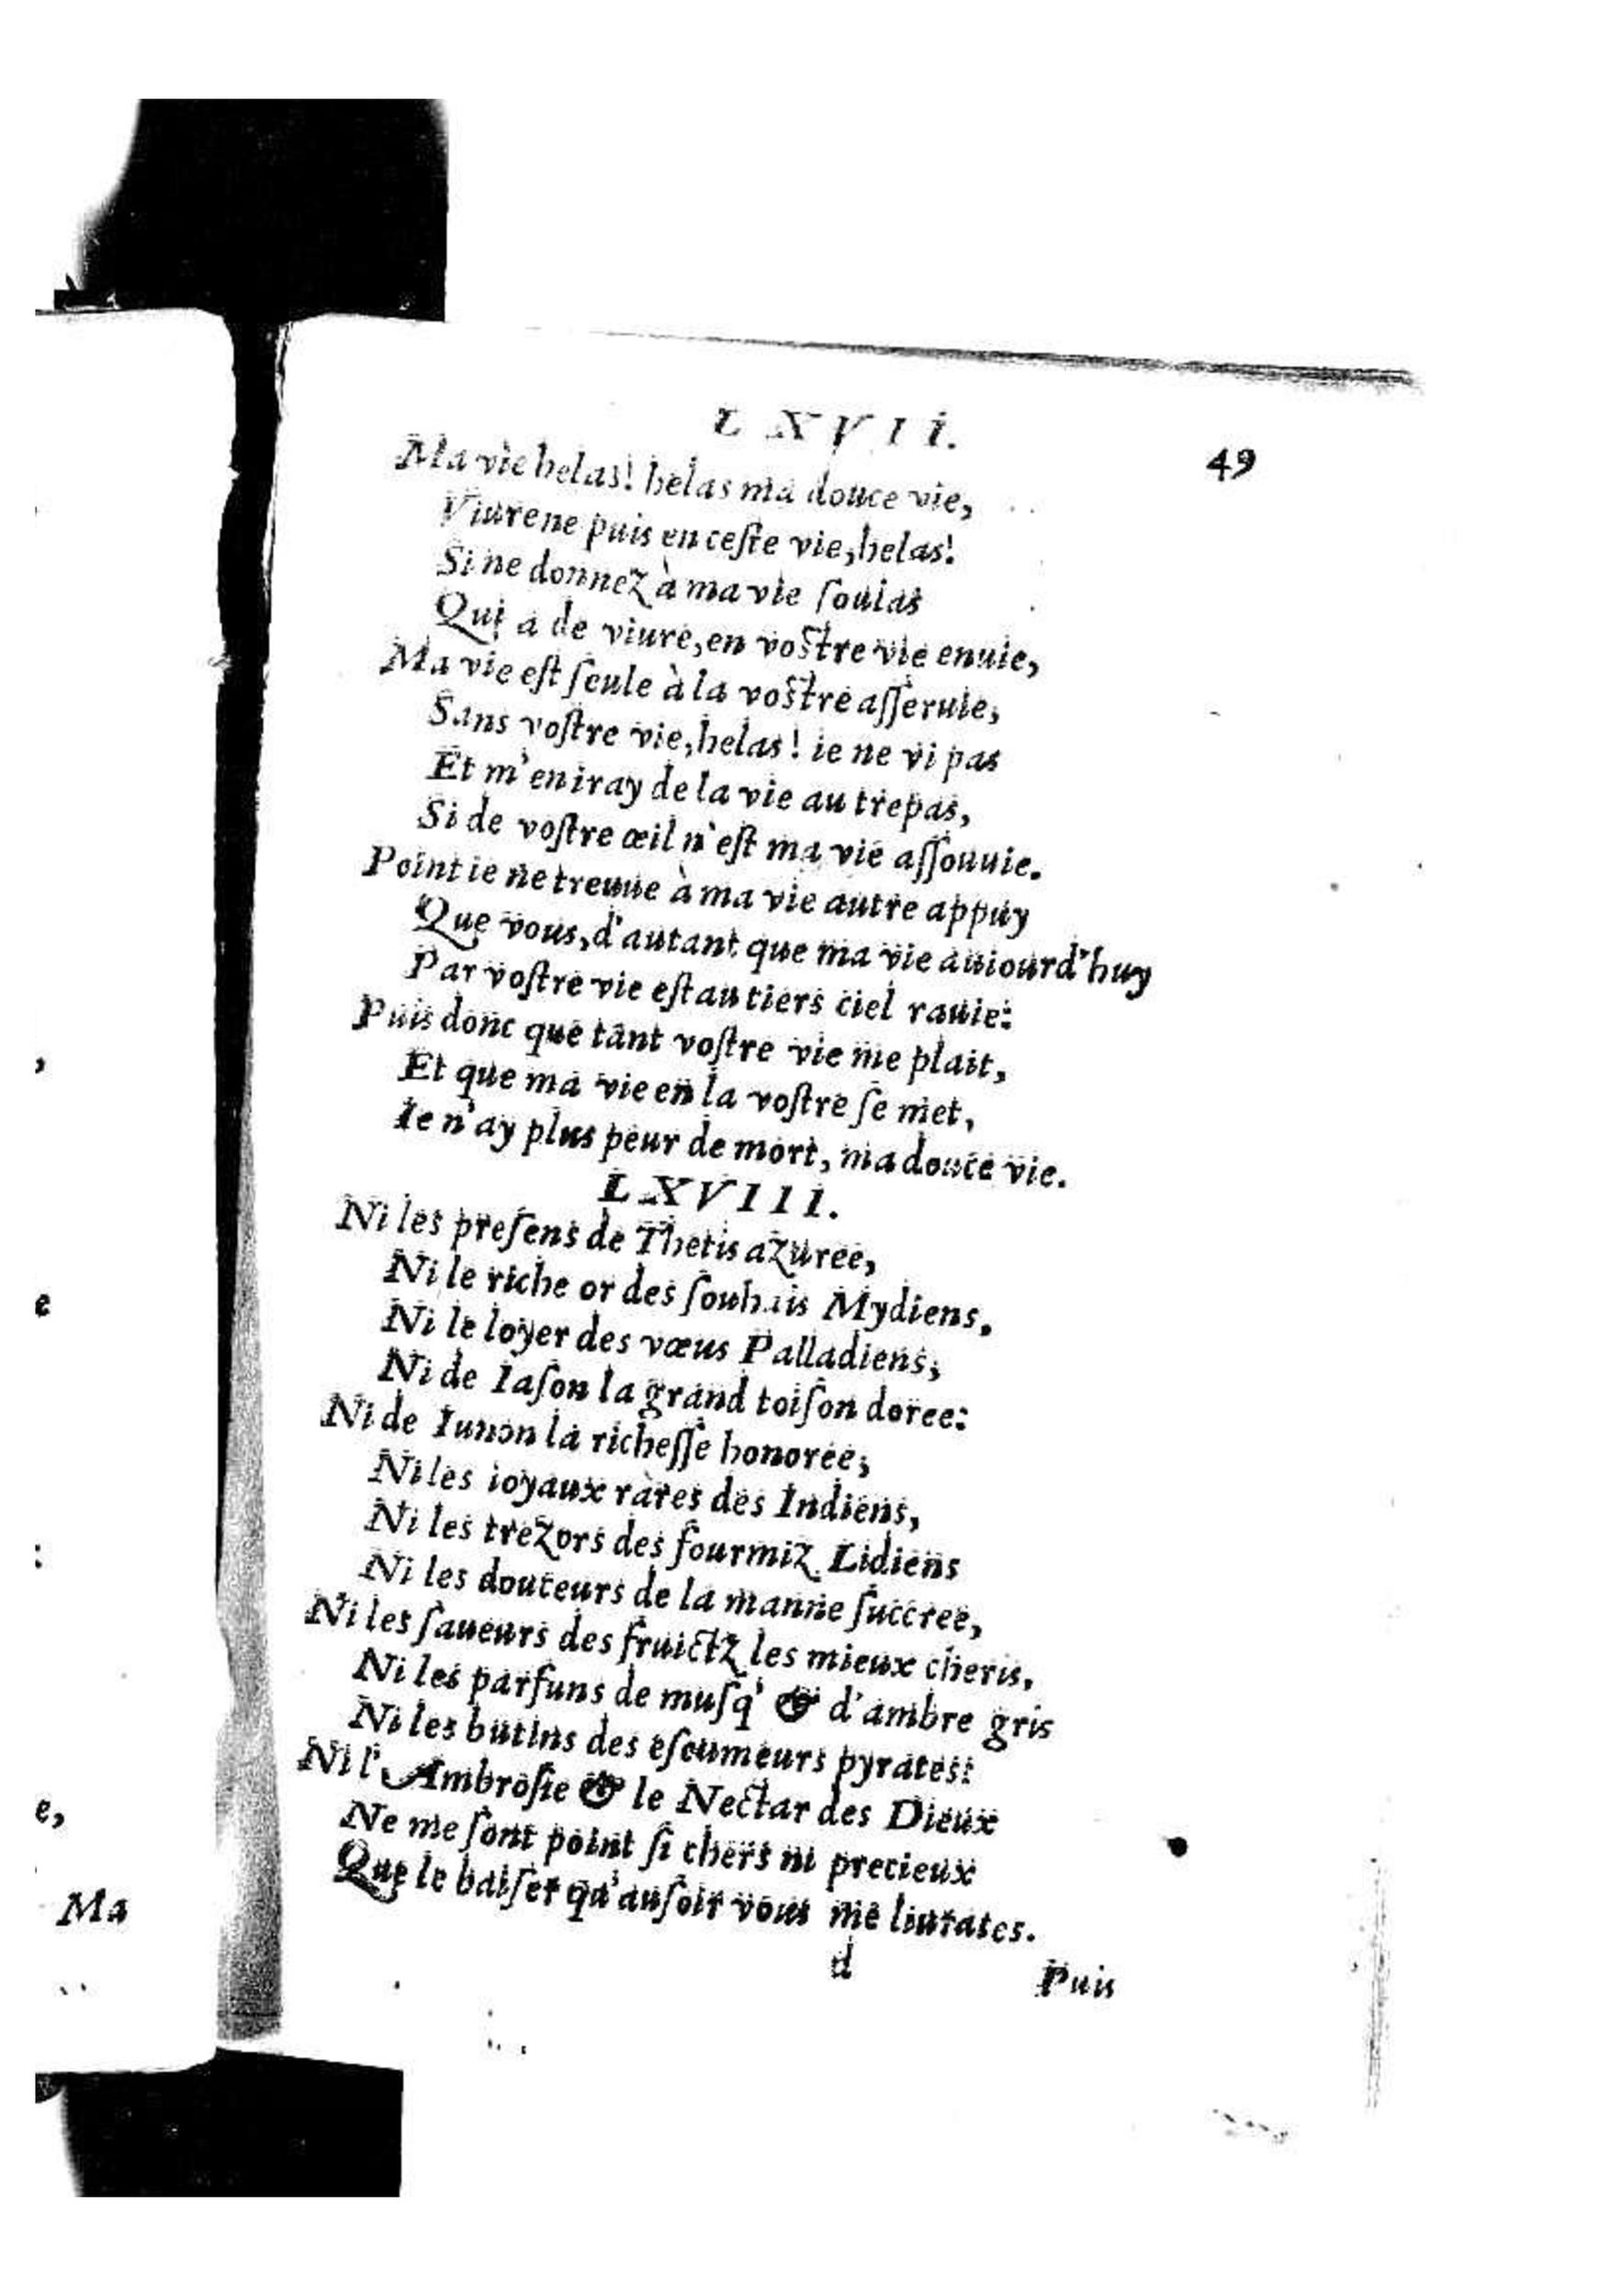 LXVII.
49
Ma vie helas! helas ma douce vie,
Viure ne puis en ceſte vie, helas!
Si ne donnez à ma vie ſoulas
Qui a de viure, en voſtre vie enuie,
Ma vie eſt ſeule à la voſtre aſſeruie,
Sans voſtre vie, helas! ie ne vi pas
Et m'en iray de la vie au trepas,
Si de voſtre œil n'eſt ma vie aſſouuie.
Point ie ne treuue à ma vie autre appuy
Que vous, d'autant que ma vie auiourd'huy
Par voſtre vie eſt au tiers ciel rauie:
Puis donc que tant voſtre vie me plait,
Et que ma vie en la voſtre ſe met,
Ie n'ay plus peur de mort, ma douce vie.
LXVIII.
Ni les preſens de Thetis azuree,
Ni le riche or des ſouhais Mydiens,
Ni le loyer des vœus Palladiens,
Ni de Iaſon la grand toiſon doree:
Ni de Iunon la richeſſe honoree,
Ni les ioyaux rares des Indiens,
Ni les trezors des fourmiz Lidiens
Ni les douceurs de la manne ſuccree,
Ni les ſaueurs des fruictz les mieux cheris,
Ni les parfuns de muſq' & d'ambre gris
Ni les butins des eſcumeurs pyrates:
Ni l'Ambroſie & le Nectar des Dieux
Ne me ſont point ſi chers ni precieux
Que le baiſer qu'auſoir vous me liurates.
d
Puis
e
e,
Ma